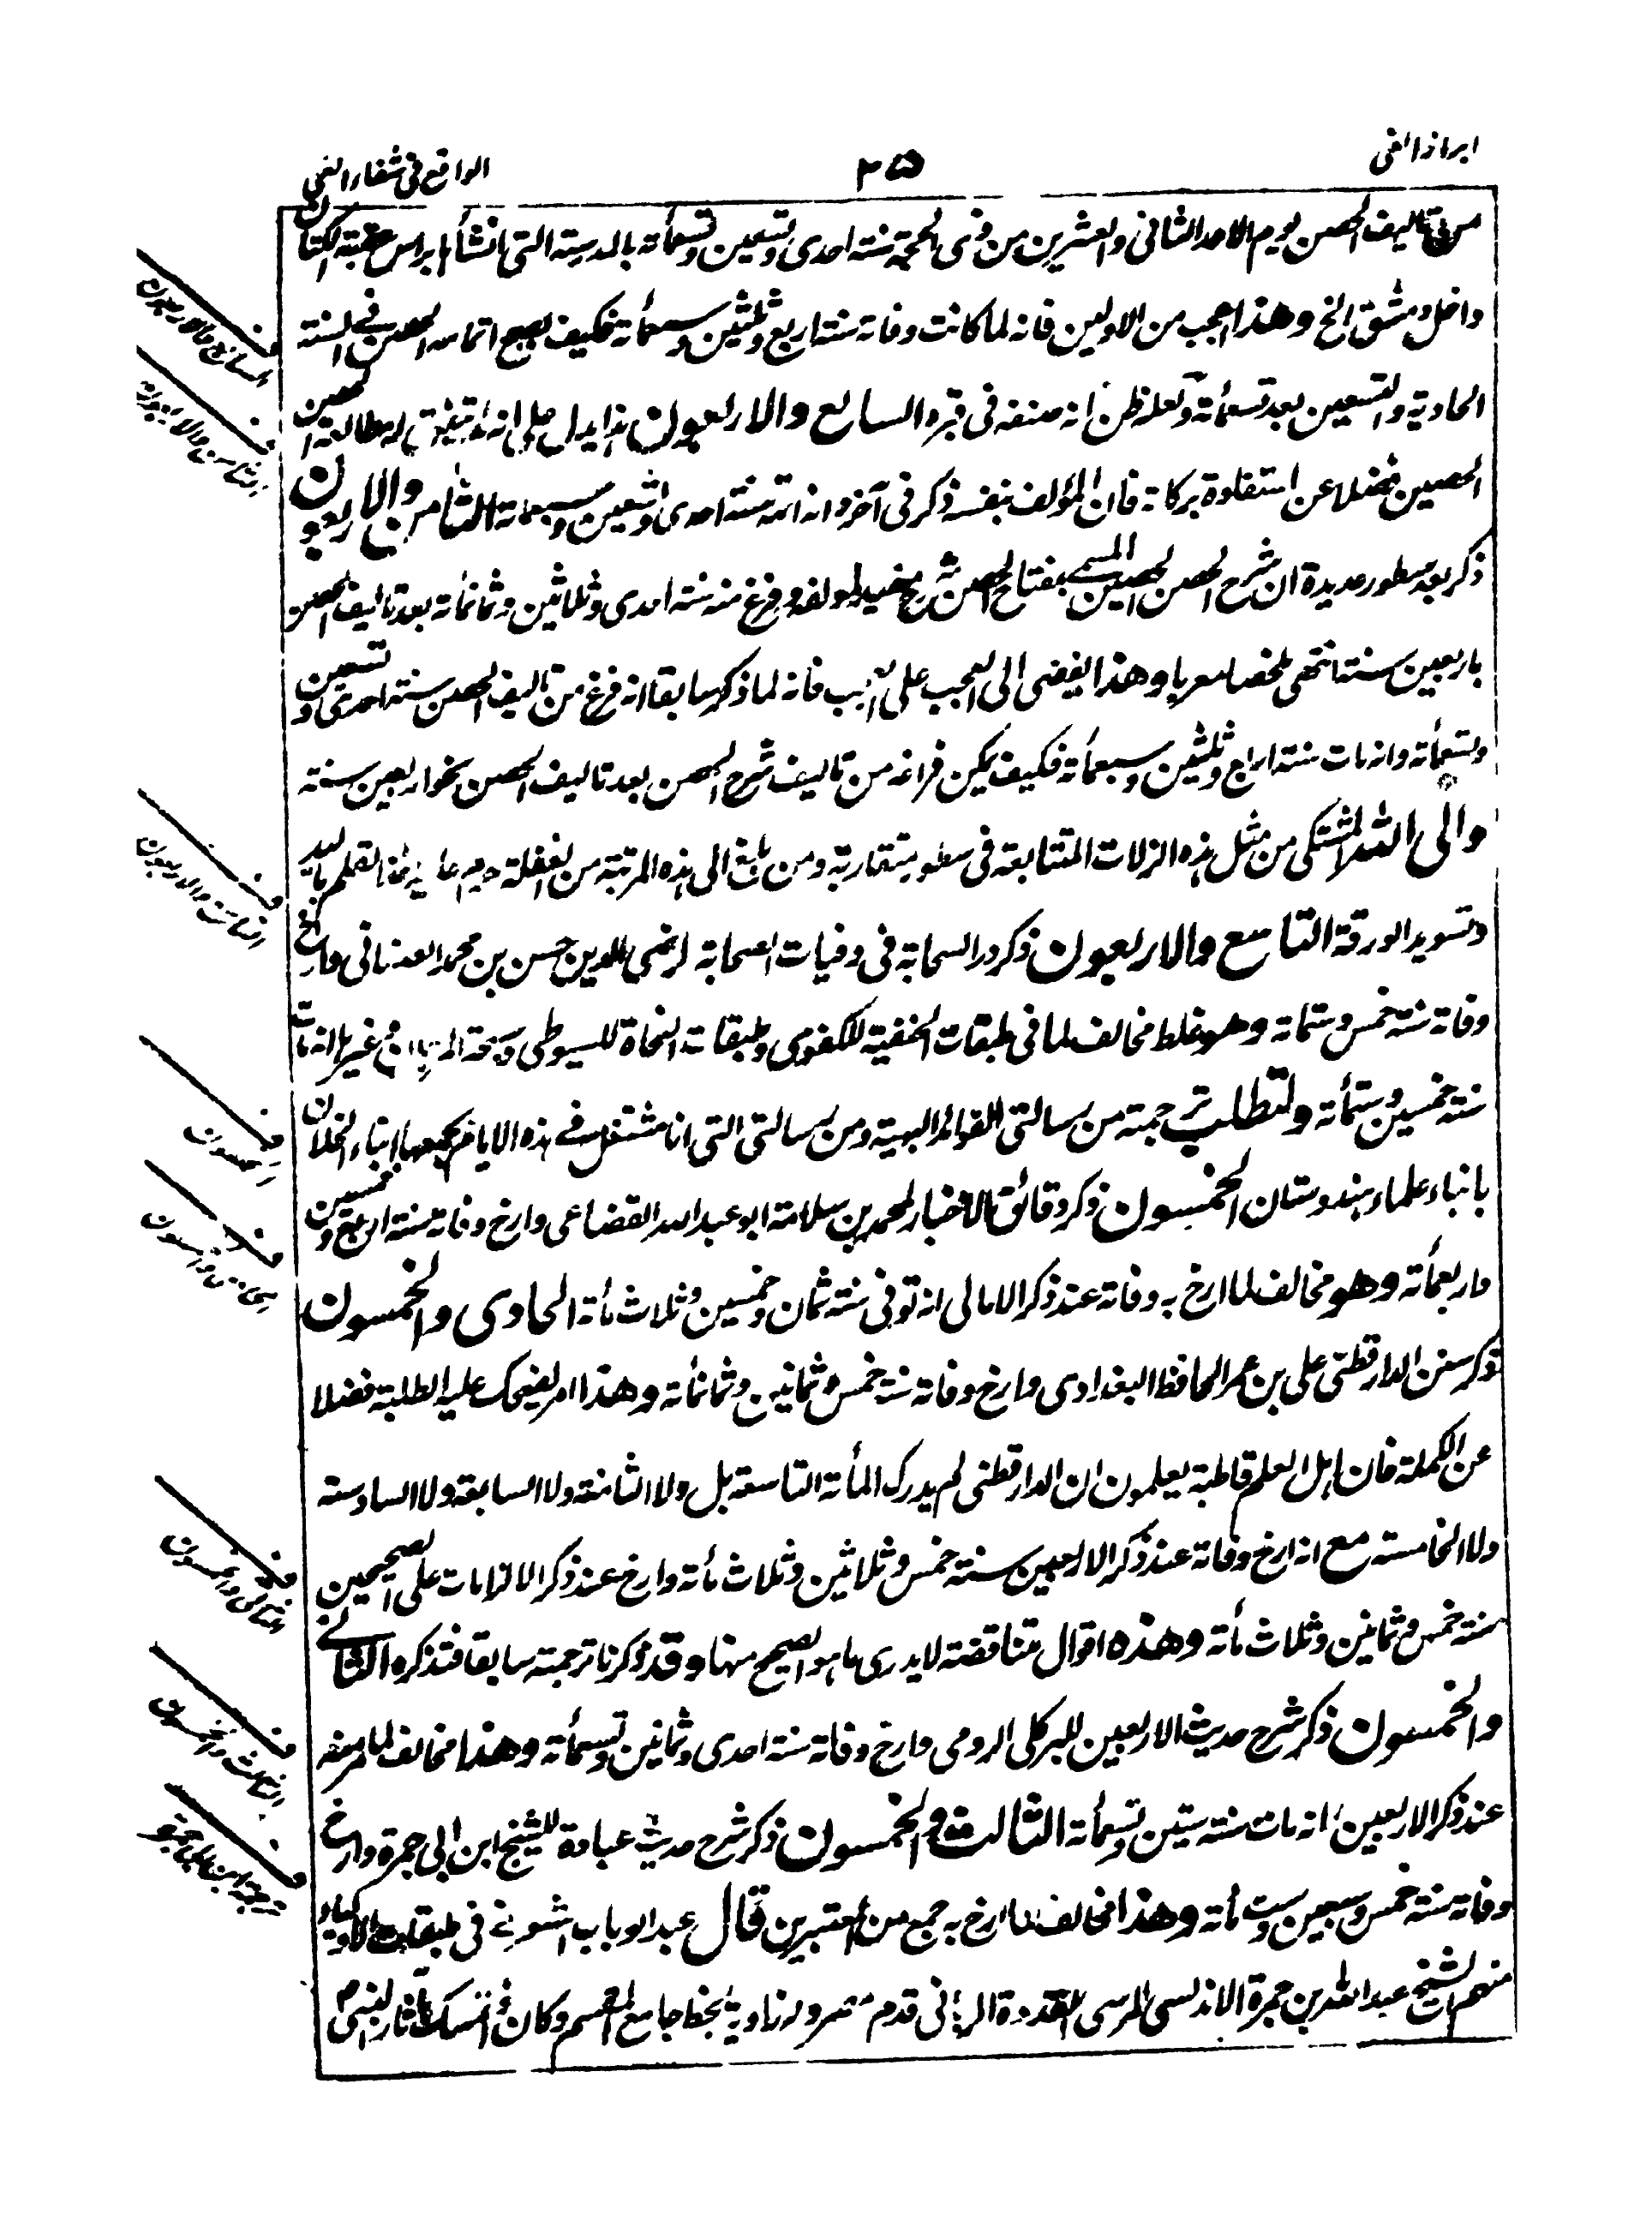 ابراز الغی
٢٥
الواقع فی شفاء العی
من تالیف الحصن یوم الاحد الثانی والعشرین من ذی الحجة سنة احدی وتسعین وتسعمأته بالمدرسة التی انشأها براس عقبة الکتان
داخل دمشق الخ وهذا اعجب من الاولین فانه لما کانت وفاته سنة اربع وثلثین وسبعمأته فکیف یصح اتمامه الحصن فی السنة
الحادیة والتسعین بعد تسعمأته ولعله ظن انه صنفه فی قبره السابع والاربعون هذا یدل علی انه لم یتفق له مطالعة الحصن
الحصین فضلا عن استفادة برکاته فان المؤلف بنفسه ذکر فی آخره انه اتمه سنة احدی وتسعین وسبعمأته الثامن والاربعون
ذکر بعد سطور عدیدة ان شرح الحصن الحصین المسمی بمفتاح الحصن شرح مفید لمولفه وفرغ منه سنة احدی وثلاثین وثمانمأته بعد تالیف الحصن
باربعین سنة انتهی ملخصا معربا وهذا یفضی الی العجب علی العجب فانه لما ذکر سابقا انه فرغ من تالیف الحصن سنة احدی وتسعین
وتسعمأته وانه مات سنة اربع وثلثین وسبعمأته فکیف یمکن فراغه من تالیف شرح الحصن بعد تالیف الحصن بنحو اربعین سنة
والی الله المشتکی من مثل هذه الزلات المتتابعة فی سطور متقاربة ومن بلغ الی هذه المرتبة من الغفلة حرم علیه اخذ القلم بالید
وتسوید الورقة التاسع والاربعون ذکر در السحابة فی وفیات الصحابة لرضی الدین حسن بن محمد الصغانی وارخ
وفاته سنة خمس وستمأته وهو غلط مخالف لما فی طبقات الحنفیة للکفوی وطبقات النحاة للسیوطی وسبحة المرجان وغیرها انه مات
سنة خمسین وستمأته ولتطلب ترجمته من رسالتی الفوائد البهیة ومن رسالتی التی انا مشتغل فے هذه الایام بجمعها انباء الخلان
بانباء علماء هندوستان الخمسون ذکر دقائق الاخبار لمحمد بن سلامة ابو عبد الله القضاعی وارخ وفاته سنة اربع وخمسین
واربعمأته وهو مخالف لما ارخ به وفاته عند ذکر الامالی انه توفی سنة ثمان وخمسین وثلاث مأته الحادی والخمسون
ذکر سنن الدارقطنی علی بن عمر الحافظ البغدادی وارخ وفاته سنة خمس وثمانین وثمانمأته وهذا امر یضحک علیه الطلبة فضلا
عن الکملة فان اهل العلم قاطبة یعلمون ان الدارقطنی لم یدرک المأته التاسعة بل ولا الثامنة ولا السابعة ولا السادسة
ولا الخامسة مع انه ارخ وفاته عند ذکر الاربعین سنة خمس وثلاثین وثلاث مأته وارخ عند ذکر الالزامات علی الصحیحین
سنة خمس وثمانین وثلاث مأته وهذه اقوال متناقضة لا یدری ما هو الصحیح منها وقد ذکرنا ترجمته سابقا فتذکره الثانے
والخمسون ذکر شرح حدیث الاربعین للبرکلی الرومی وارخ وفاته سنة احدی وثمانین وتسعمأته وهذا مخالف لما مر منه
عند ذکر الاربعین انه مات سنة ستین وتسعمأته الثالث والخمسون ذکر شرح حدیث عبادة للشیخ ابن ابی جمرة وارخ
وفاته سنة خمس وسبعین وست مأته وهذا مخالف لما ارخ به جمع من المعتبرین قال عبد الوهاب الشعرانے فی طبقات الاولیاء
منهم الشیخ عبد الله بن جمرة الاندلسی المرسی القدوة الربانی قدم مصر وله زاویة بخط جامع المقسم وکان ذا تمسک بآثار النبی
السابع والاربعون
الثامن والاربعون
التاسع والاربعون
الخمسون
الحادی والخمسون
الثانی والخمسون
الثالث والخمسون
ترجمة ابن ابی جمرة